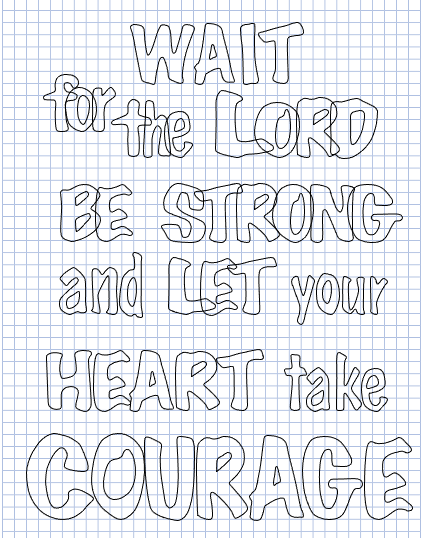 WAIT
for the LORD
BE STRONG
and LET your
HEART take
COURAGE